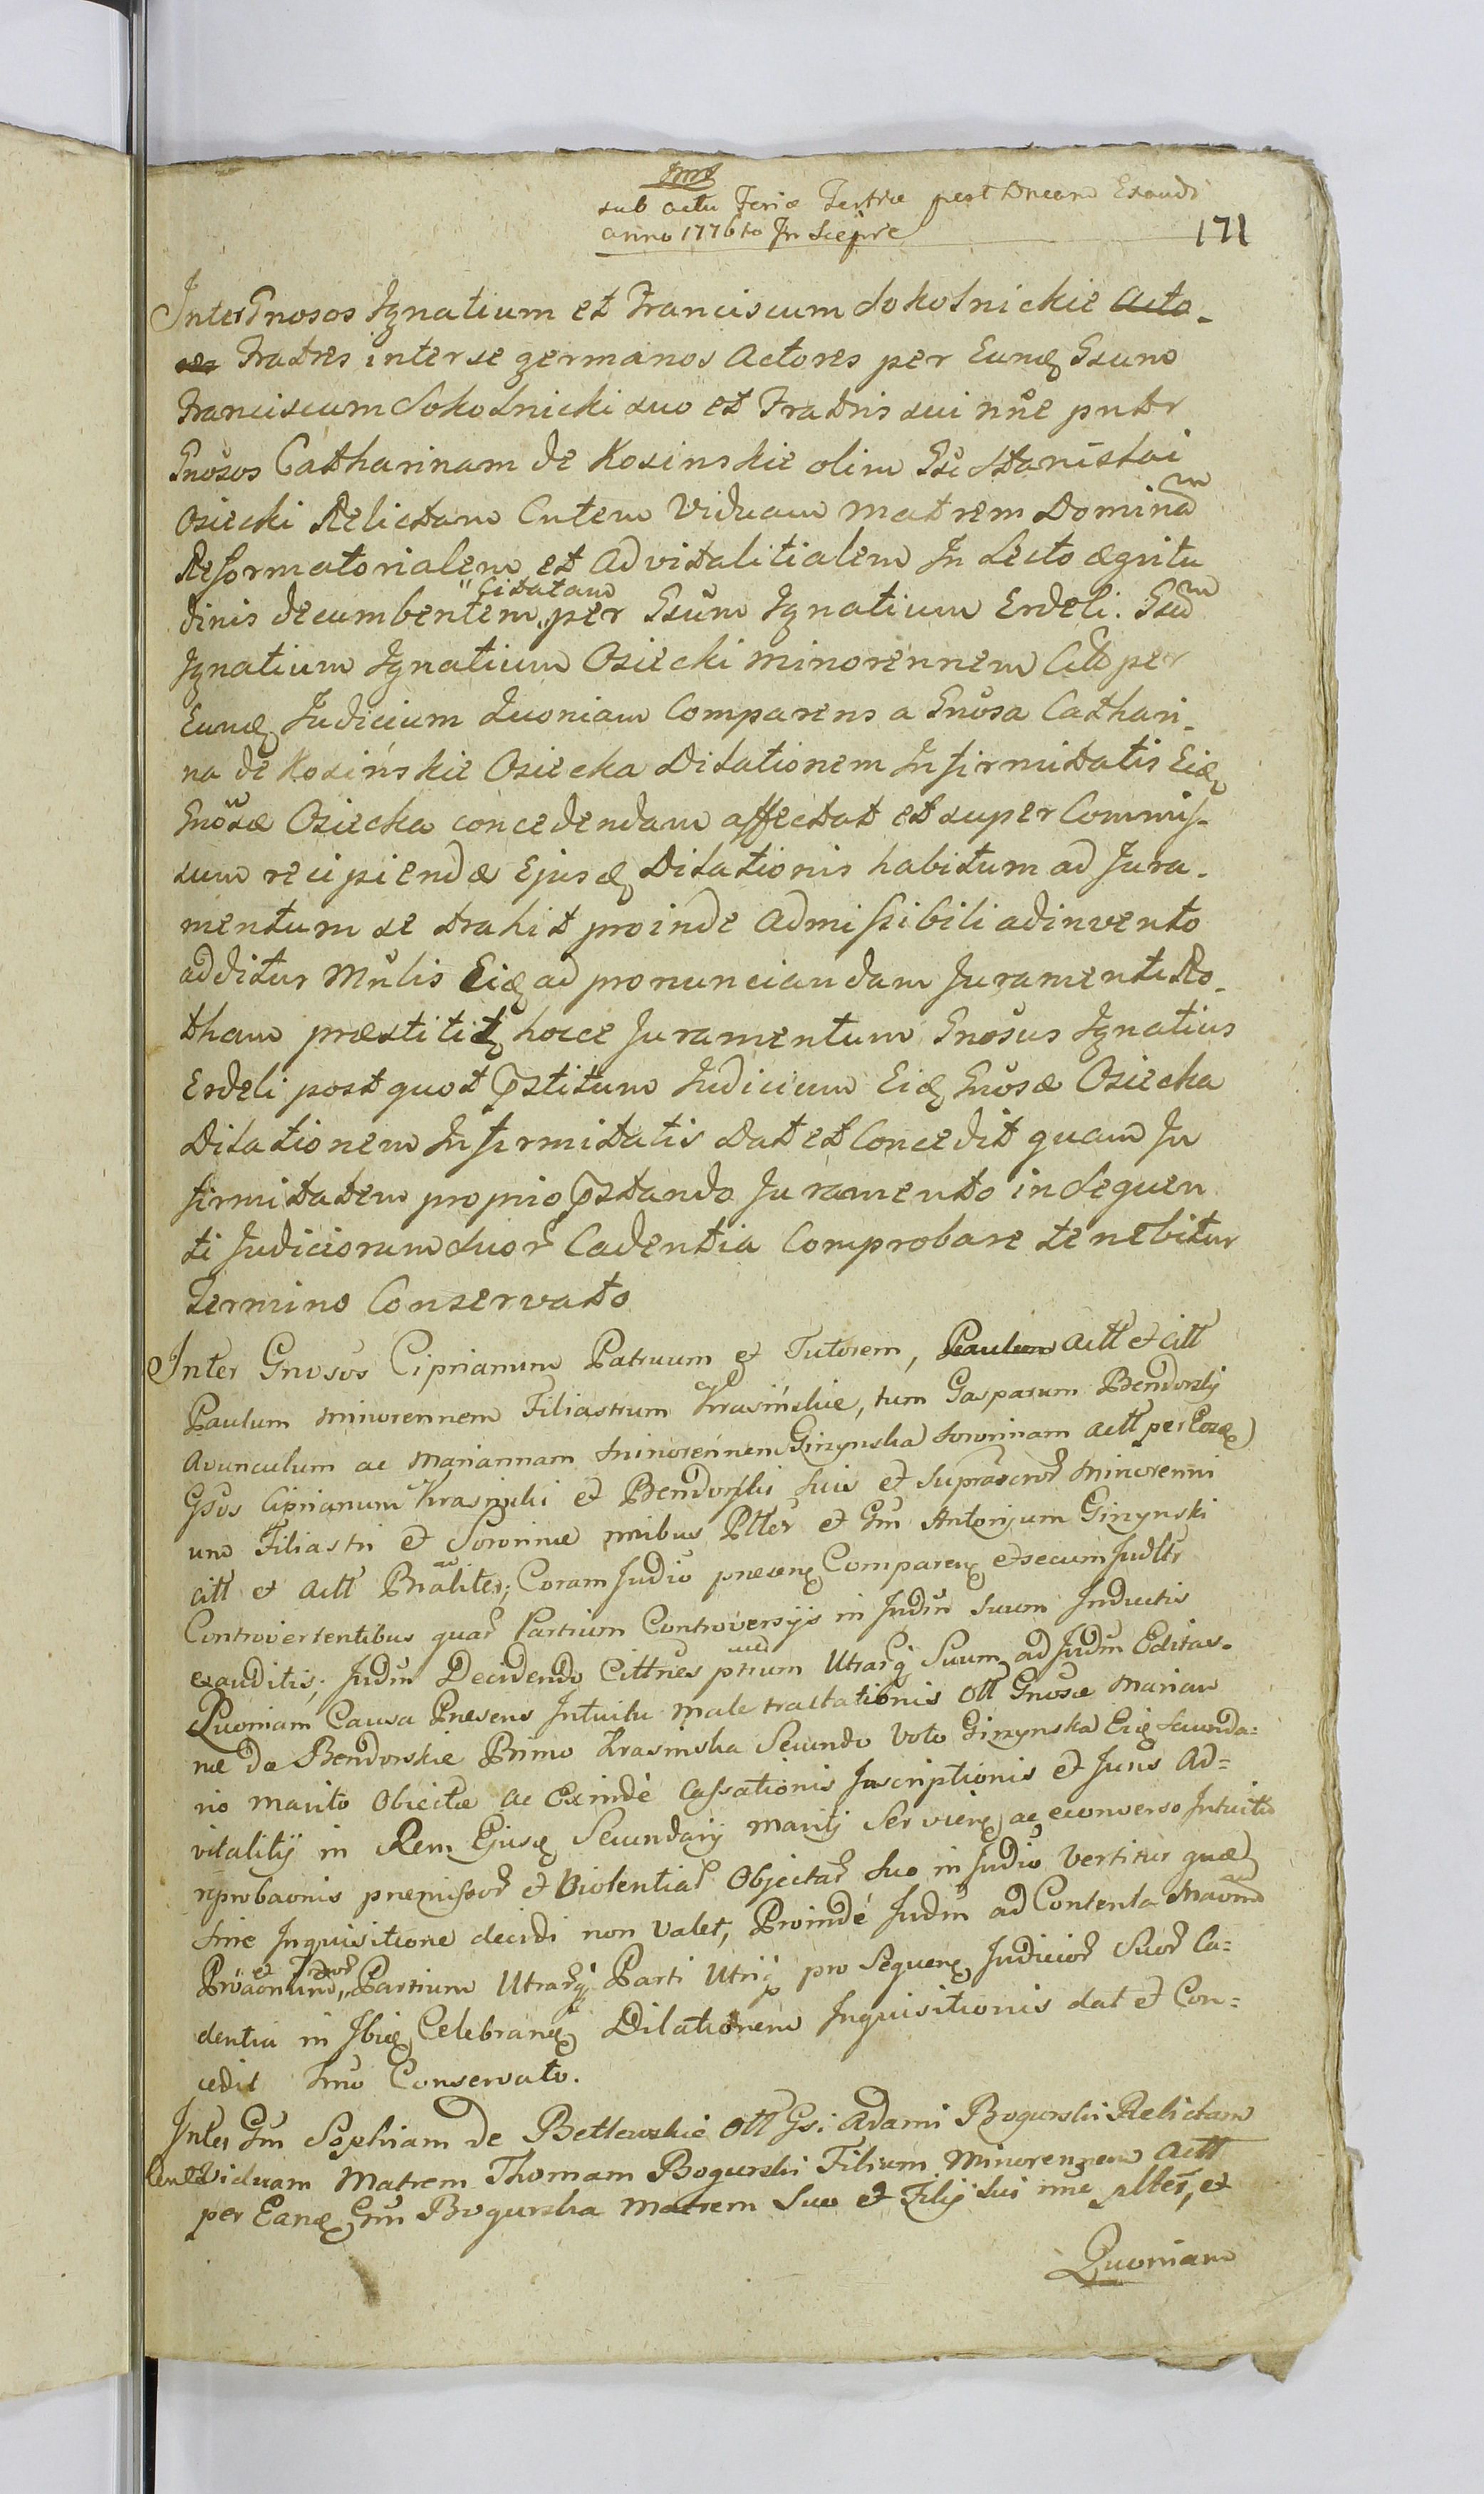 sub actu Feriæ Tertiæ post Dncam Exaudi
anno 1776to In Sierpre
171
Inter Gnosos Ignatium et Franciscum Sokolnickie Acto-
res Fratres inter se germanos Actores per Eund Gsum
Franciscum Sokolnicki suo et Fratris sui nñe pntr
Gnosos Catharinam de Kosinskie olim Gsi Stanislai
Osiecki Relictam Cntem Viduam matrem Dominam
Reformatorialem et Advitalitialem In Lecto ægritu
dinis decumbentem " Citatam per Gsum Ignatium Erdeli. Gsum
Ignatium Ignatium Osiecki minorennem Citt per
Eund Judicium Quoniam Comparens a Gnosa Cathari-
na de Kosińskie Osiecka Dilationem Infirmitatis Eid
Gnosæ Osiecka concedendam affectat et super Commis-
sum recipiendæ Ejusd Dilationis habitum ad Jura-
mentum se trahit proinde Admissibili adinvento
additur Mnlis Eid ad pronunciandam Juramenti Ro-
tham præstititq hocce Juramentum Gnosus Ignatius
Erdeli post quot pstitum Judicium Eid Gnosæ Osiecka
Dilationem Infirmitatis Dat et Concedit quam In
firmitatem proprio pstando Juramento in Sequen
ti Judiciorum Suor Cadentia Comprobare tenebitur
Termino Conservato
Inter Gnosos Ciprianum Patruum et Tutorem, Paulum Actt et citt
Paulum minorennem Filiastrum Krasińskie, tum Gasparum Bendorski
Avunculum ac Mariannam Minorennem Ginynska Sororinam Actt per Eosd
Gsos Ciprianum Krasinski et Bendorski Suis et Suprascror Minorenni
um Filiastri et Sororinæ nnibus Ptter et Gm Antonyum Ginynski
citt et Actt Pnaliter; Coram Judio præsend Comparend et secum Judltr
Controvertentibus quar Partium Controversijs in Judm Suum Inductis
exauditis; Judm Decidendo Cittnes ptium Utrarq Suum ad Judm Editas.
Quoniam Causa Præsens Intuitu male tractationis Ott Gnosæ Marian
næ de Bendorskie Primo Krasinska Secundo Voto Ginynska Eid Secunda=
rio marito Obiectæ ac Exinde Cassationis Inscriptionis et Juris Ad=
vitalitij in Rem Ejusd Secundarij Maritj Serviend ac econverso Intuitu
reprobaonis præmissor et Violentiar Objectar Suo in Judio Vertitur quæ
Sine Inquisitione decidi non Valet, Proinde Judm ad Contenta
Partium Utrarq Parti Utriq pro Sequend Judicior Suor Ca=
dentia in Ibid Celebrand Dilationem Inquisitionis dat et Con=
cedit Tmno Conservato.
Inter Gm Sophiam de Bettewskie Ott Gsi Adami Bogurski Relictam
Cntem Viduam Matrem Thomam Bogurski Filium Minorennem Actt
per Eand Gm Bogurska Matrem Suo et Filij Sui nnē ptter, et
Quoniam